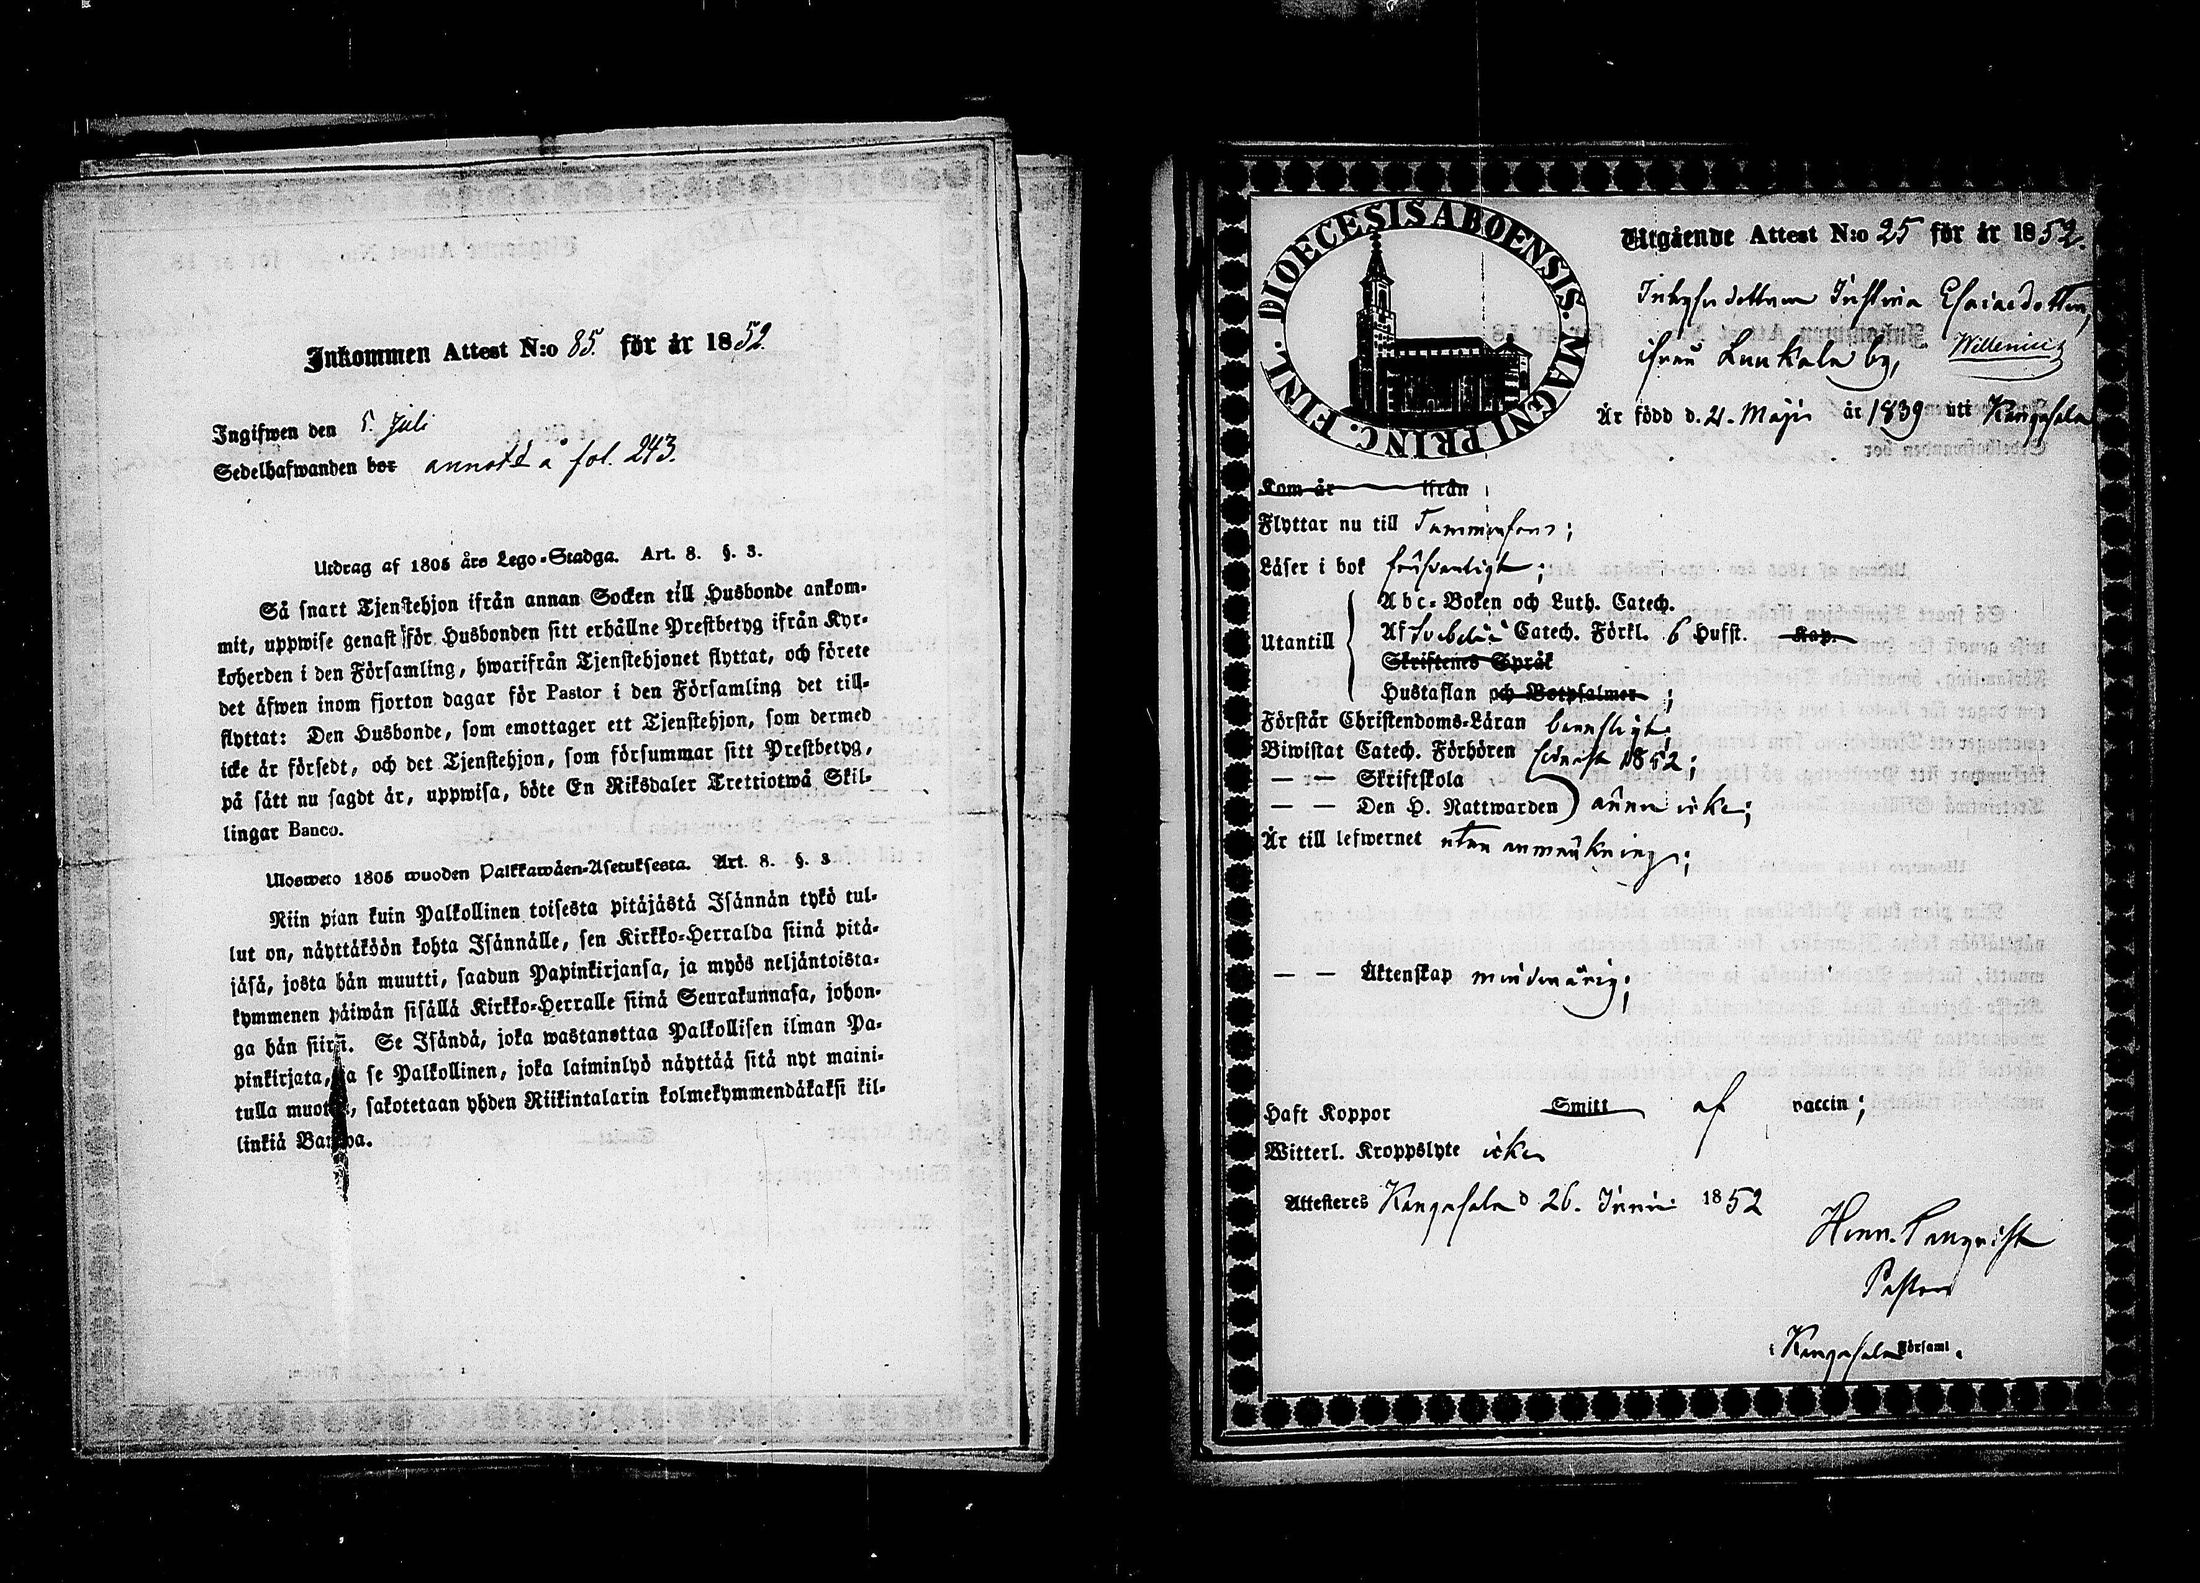 Inkommen Attest N:o 85. för år 1852
Ingifwen den 5. Juli
Sedelhafwanden bor annot'd å fol. 243.
Utdrag af 1805 års Lego-Stadga. Art. 8. §. 3.
Så snart Tjenstehjon ifrån annan Socken till Husbonde ankom-
mit, uppwise genast för Husbonden sitt erhållne Prestbetyg ifrån Kyr-
koherden i den Församling, hwarifrån Tjenstehjonet flyttat, och förete
det äfwen inom fjorton dagar för Pastor i den Församling det till-
flyttat: Den Husbonde, som emottager ett Tjenstehjon, som dermed
icke är försedt, och det Tjenstehjon, som försummar sitt Prestbetyg,
på sätt nu sagdt är, uppwisa, böte En Riksdaler Trettiotwå Skil-
lingar Banco.
Ulosweto 1805 wuoden Palkkawäen-Asetuksesta. Art. 8. §. 3
Niin pian kuin Palkollinen toisesta pitäjästä Isännän tykö tul-
lut on, näyttäköön kohta Isännälle, sen Kirkko-Herralda siinä pitä-
jäsä, josta hän muutti, saadun Papinkirjansa, ja myös neljäntoista-
kymmenen päiwän sisällä Kirkko-Herralle siinä Seurakunnasa, johon-
ga hän siirsi. Se Isändä, joka wastanottaa Palkollisen ilman Pa-
pinkirjata, ja se Palkollinen, joka laiminlyö näyttää sitä nyt maini-
tulla muotoa, sakotetaan yhden Riikintalarin kolmekymmendäkaksi kil-
linkiä Bankoa.
DIOECESIS ABOENSIS. MAGNI PRINC. FINL.
Utgående Attest N:o 25 för år 1852.
Inhysedottren Justina Esaiaedotter,
ifrån Liukala by, Willenius
Är född d. 21. Maji år 1839 uti Kangasala
Kom år ifrån
Flyttar nu till Tammerfors;
Läser i bok försvarligt;
Abc-Boken och Luth. Catech.
Utantill Af Svebelii Catech. Förkl. 6 Hufst. Kap.
Skriftenes Språk
Hustaflan och Botpsalmer;
Förstår Christendoms-Läran
Biwistat Catech. Förhören sednast 1852;
— — Skriftskola
— — Den H. Nattwarden ännu icke;
Är till lefwernet utan anmärkning;
— — Äktenskap minderårig;
Haft Koppor Smitt af vaccin;
Witterl. Kroppslyte icke
Attesteres Kangasala d 26. Junii 1852
Henr.
Pastor
i Kangasala Församl.